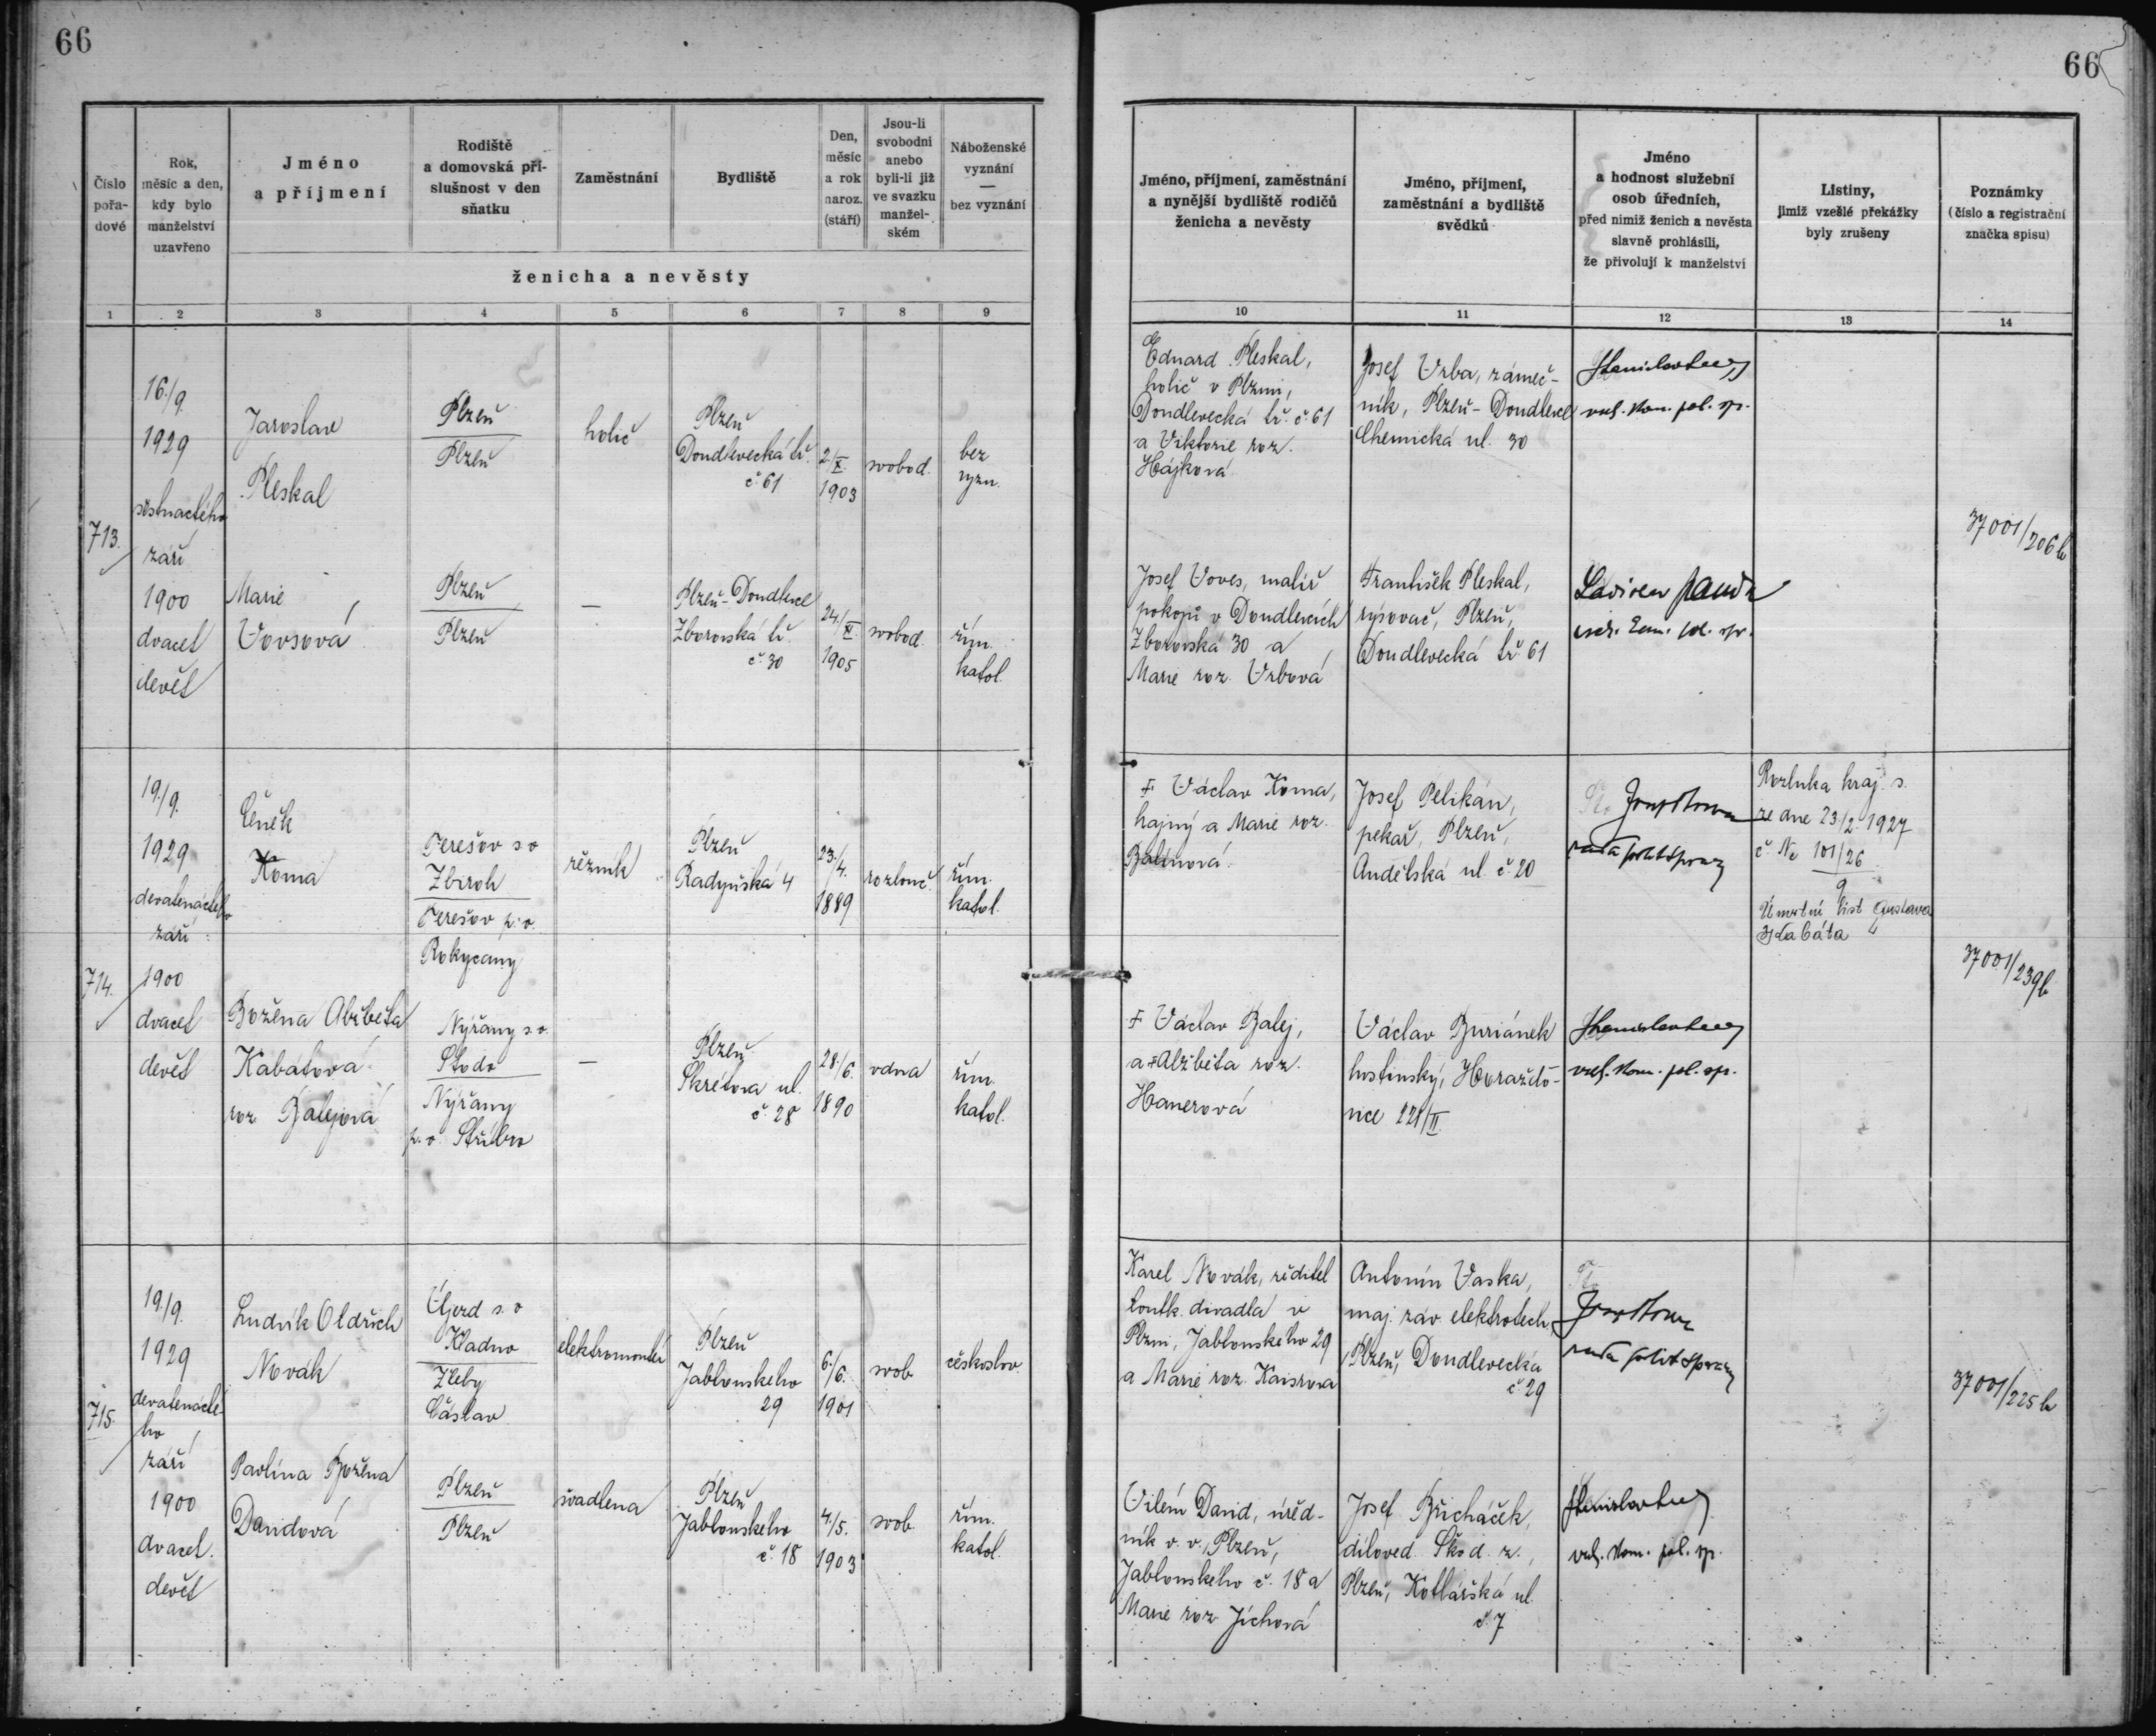 66
66
Číslo pořadové
Rok, měsíc a den, kdy bylo manželství uzavřeno
Jméno a příjmení
Rodiště a domovská příslušnost v den sňatku
Zaměstnání
Bydliště
Den, měsíc a rok naroz. (stáří)
Jsou-li svobodni anebo byli-li již ve svazku manželském
Náboženské vyznání — bez vyznání
ženicha a nevěsty
Jméno, příjmení, zaměstnání a nynější bydliště rodičů ženicha a nevěsty
Jméno, příjmení, zaměstnání a bydliště svědků
Jméno a hodnost služební osob úředních, před nimiž ženich a nevěsta slavně prohlásili, že přivolují k manželství
Listiny, jimiž vzešlé překážky byly zrušeny
Poznámky (číslo a registrační značka spisu)
1 2 3 4 5 6 7 8 9 10 11 12 13 14
713.
16./9.
1929
šestnactého
září
1900
dvacet
devět
Jaroslav
Pleskal
Plzeň
Plzeň
holič
Plzeň
Doudlevecká tř.
č. 61
2./X.
1903
svobod.
bez
vyzn.
Eduard Pleskal,
holič v Plzni,
Doudlevecká tř. č. 61
a Viktorie roz.
Hájková
Josef Vrba, zámeč-
ník, Plzeň - Doudlevce
Chemická ul. 30
vrch. kom. pol. sp.
37001/206b
Marie
Vovsová
Plzeň
Plzeň
—
Plzeň - Doudlevce
Zborovská tř.
č. 30
24./XI.
1905
svobod.
řím.
katol.
Josef Voves, malíř
pokojů v Doudlevcích
Zborovská 30 a
Marie roz. Vrbová
František Pleskal,
rýsovač, Plzeň,
Doudlevecká tř. 61
Ladislav Panda
vrch. kom. pol. spr.
714.
19./9.
1929
devatenáctého
září
1900
dvacet
devět
Čeněk
Koma
Terešov s o
Zbiroh
Terešov p. o.
Rokycany
řezník
Plzeň
Radyňská 4
23./4.
1889
rozlouč.
řím.
katol.
Ŧ Václav Koma,
hajný a Marie roz.
Balínová
Josef Pelikán,
pekař, Plzeň,
Andělská ul. č. 20
rada polit správy
Rozluka kraj. s.
ze dne 23./2. 1927
č. Nc 101/26
9
Úmrtní list Gustava
Kabáta
37001/239b
Božena Alžběta
Kabátová
roz Balejová
Nýřany s o.
Stodo
Nýřany
p. o. Stříbro
—
Plzeň
Skrétova ul.
č. 28
28./6.
1890
vdova
řím.
katol.
Ŧ Václav Balej,
a Ŧ Alžběta roz.
Hanerová
Václav Buriánek
hostinský, Horažďo-
vice 121/II
vrch. kom. pol. sp.
715.
19./9.
1929
devatenácté-
ho
září
1900
dvacet
devět
Ludvík Oldřich
Novák
Újezd s. o
Kladno
Žleby
Čáslav
elektromontér
Plzeň
Jablonského
29
6./6.
1901
svob
českoslov.
Karel Novák, ředitel
loutk. divadla v
Plzni, Jablonského 29
a Marie roz. Kaisrova
Antonín Vaska,
maj. záv. elektrotech.
Plzeň, Doudlevecká
č. 29
rada polit správy
37001/225b
Pavlína Božena
Davidová
Plzeň
Plzeň
švadlena
Plzeň
Jablonského
č. 18
4./5.
1903
svob
řím.
katol.
Vilém David, úřed-
ník v. v., Plzeň,
Jablonského č. 18 a
Marie roz. Jíchová
Josef Břicháček,
díloved. Škod. z.,
Plzeň, Kotlářská ul.
č. 7
vrch. kom. pol. sp.